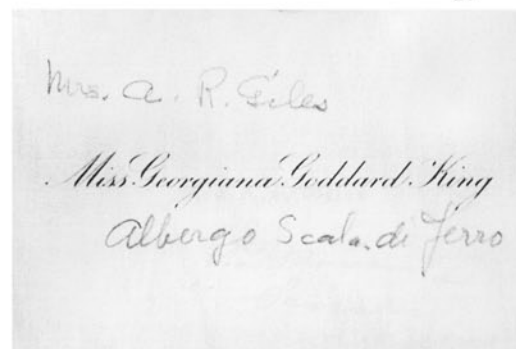 Mrs. A. R. Giles
Miss Georgiana Goddard King
Albergo Scala di Ferro